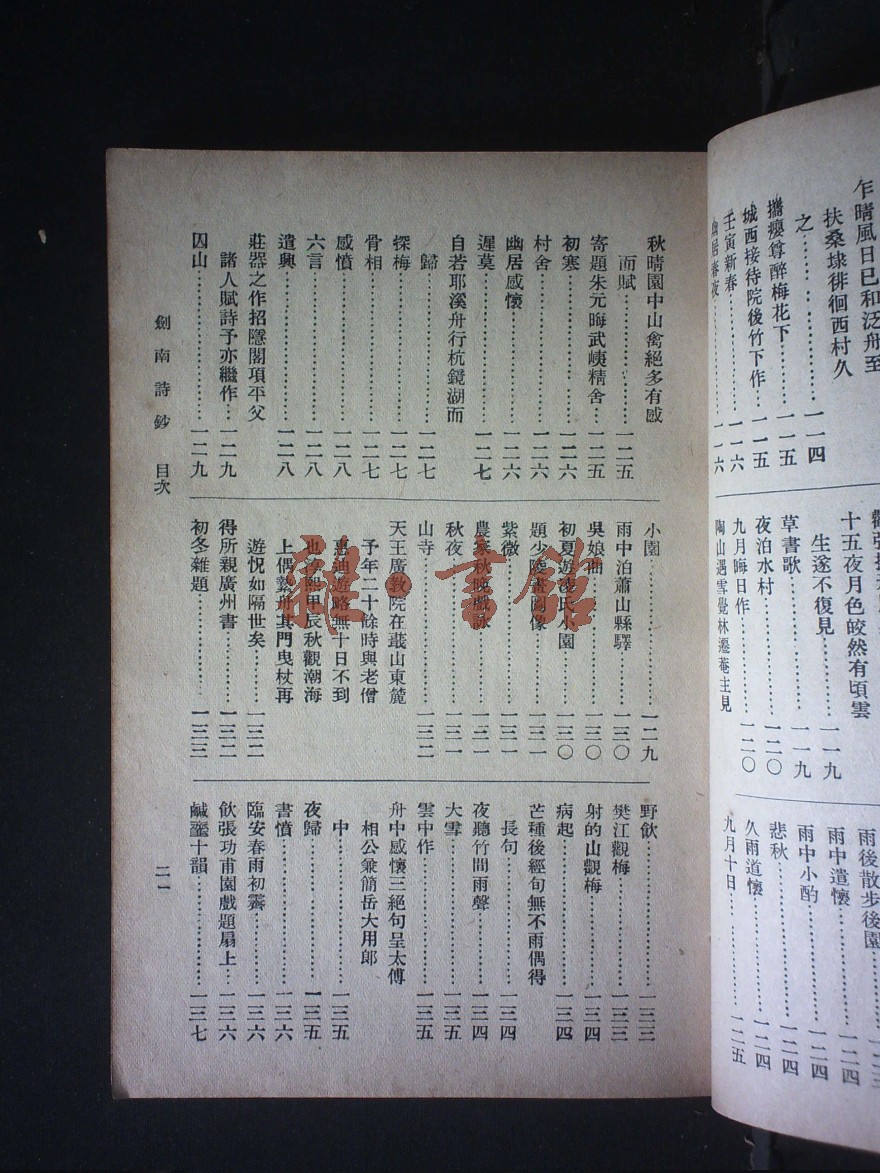 乍晴風日已和泛舟至
扶桑埭徘徊西村久
之……………一一四
攜癭尊醉梅花下……一一五
城西接待院後竹下作…一一五
壬寅新春……………一一六
幽居春夜……………一一六
十五夜月色皎然有頃雲
生遂不復見…………一一九
草書歌………………一一九
夜泊水村……………一二〇
九月晦日作…………一二〇
陶山遇雪覺林遷菴主見
雨後散步後園
雨中遣懷……………一二四
雨中小酌……………一二四
悲秋…………………一二四
久雨道懷……………一二四
九月十日……………一二五
秋晴園中山禽絕多有感
而賦…………………一二五
寄題朱元晦武夷精舍…一二五
初寒…………………一二六
村舍…………………一二六
幽居感懷……………一二六
遲莫…………………一二七
自若耶溪舟行杭鏡湖而
歸……………………一二七
探梅…………………一二七
骨相…………………一二七
感憤…………………一二八
六言…………………一二八
遣興…………………一二八
莊器之作招隱閣項平父
諸人賦詩予亦繼作…一二九
囚山…………………一二九
小園…………………一二九
雨中泊蕭山縣驛……一三〇
吳娘曲………………一三〇
初夏遊凌氏小園……一三〇
題少陵畫圖像………一三一
紫微…………………一三一
農家秋晚戲詠………一三一
秋夜…………………一三一
山寺…………………一三二
天王廣教院在蕺山東麓
予年二十餘時與老僧
惠迪遊略無十日不到
也淳熙甲辰秋觀潮海
上偶繫舟其門曳杖再
遊怳如隔世矣………一三二
得所親廣州書………一三二
初冬雜題……………一三三
野飲…………………一三三
樊江觀梅……………一三三
射的山觀梅…………一三四
病起…………………一三四
芒種後經旬無不雨偶得
長句…………………一三四
夜聽竹間雨聲………一三四
大雪…………………一三五
雲中作………………一三五
舟中感懷三絕句呈太傅
相公兼簡岳大用郎
中……………………一三五
夜歸…………………一三五
書憤…………………一三六
臨安春雨初霽………一三六
飲張功甫園戲題扇上…一三六
鹹虀十韻……………一三七
劍南詩鈔 目次
二一
雜·書館